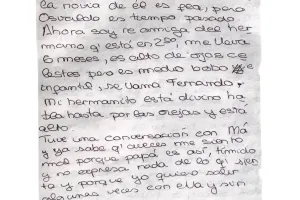 la novia de él es fea, pero
Osvaldo es tiempo pasado.
Ahora soy re amiga del her
mano q' está en 2do, me lleva
6 meses, es alto de ojos ce
lestes pero es medio bobo e
infantil, se llama Fernando.
Mi hermanito está divino ha
bla hasta por las orejas y está
alto.
Tuve una conversación con Má
y ya sabe q' aveces me siento
mal porque papá es así, tímido
y no expresa nada de lo q' sien
te y porque yo quiero salir
algunas veces con ella y sin